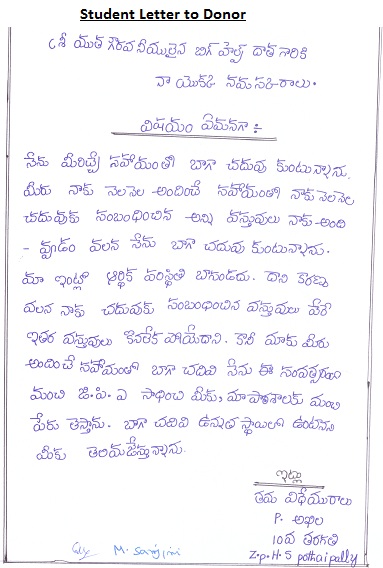 Student Letter to Donor
శ్రీ యుత గౌరవనీయులైన బిగ్ హెల్ప్ దాత గారికి
నా యొక్క నమస్కారాలు.
విషయం ఏమనగా :-
నేను మీరిచ్చే సహాయంతో బాగా చదువు కుంటున్నాను.
మీరు నాకు నెలనెల అందించే సహాయంతో నాకు నెలనెల
చదువుకు సంబంధించిన అన్ని వస్తువులు నాకు అంది
- వ్వడం వలన నేను బాగా చదువు కుంటున్నాను.
మా ఇంట్లో ఆర్థిక పరిస్థితి బాగుండదు. దాని కారణం
వలన నాకు చదువుకు సంబంధించిన వస్తువులు వేరే
ఇతర వస్తువులు కొనలేక పోయేదాని. కానీ మాకు మీరు
అందించే సహాయంతో బాగా చదివి నేను ఈ సంవత్సరం
మంచి జి.పి.ఎ సాధించి మీకు, మా పాఠశాలకు మంచి
పేరు తెస్తాను. బాగా చదివి ఉన్నత స్థాయిలో ఉంటానని
మీకు తెలియజేస్తున్నాను.
ఇట్లు
తమ విధేయురాలు
P. అఖిల
10వ తరగతి
Z.p.H.S pothaipally
M. Sarojini